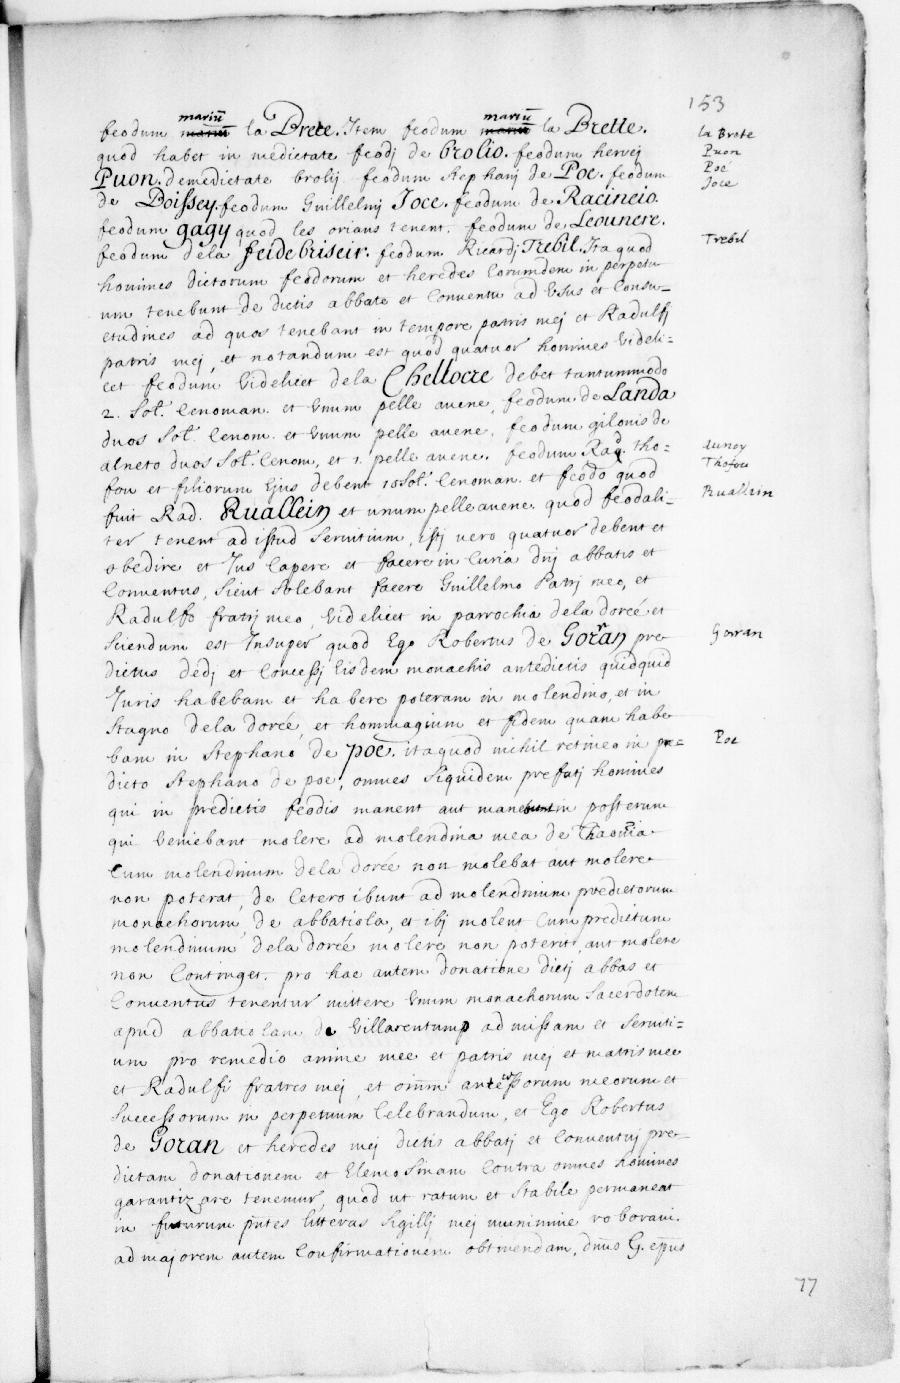 153
feodum mariū la Brete. Item feodum mariū la Brette.
quod habet in medictate feodj de brolio. feodum hervej
Puon. demedictate brolij feodum Stephanj de Poe. feodum
de Doissey. feodum Guillelmj Joce. feodum de Racineio.
feodum gagy quod les orians tenent. feodum de Leounere.
feodum dela feidebriseir. feodum Ricardj Trebil. Ita quod
homines dictorum feodorum et heredes Eorumdem in perpetu
um tenebunt de dictis abbate et Conventu ad Usus et Consu=
etudines ad quos tenebant in tempore patris mej et Radulfj
patris mej, et notandum est quod quatuor homines Videli=
cet feodum Videlicet dela Chellocre debet tantummodo
2. Sol. Cenoman. et Unum pelle avene, feodum de Landa
duos Sol. Cenom. et Unum pelle avene, feodum gilonis de
alneto duos Sol. Cenom, et 1. pelle avene. feodum Rad. Tho=
fou et filiorum Ejus debent 18 Sol. Cenoman. et feodo quod
fuit Rad. Ruallein et unum pelle avene. quod feodali=
ter tenent ad istud Servitium, istj vero quatuor debent et
obedire et Jus Capere et facere in Curia dnj abbatis et
Conventus, Sicut Solebant facere Guillelmo Patrj meo, et
Radulfo fratrj meo, Videlicet in parrochia dela dorée et
Sciendum est Insuper quod Ego Robertus de Gorran pre
dictus dedj et Concessj Eisdem monachis antedictis quidquid
Juris habebam et habere poteram in molendino, et in
Stagno dela dorée, et hommagium et fidem quam habe
bam in Stephano de poe. itaquod nihil retineo in pre=
dicto Stephano de poe, omnes Siquidem prefatj homines
qui in predictis feodis manent aut manebunt in posterum
qui Veniebant molere ad molendina mea de
Cum molendinum dela dorée non molebat aut molere
non poterat, de Cetero ibunt ad molendinum predictorum
monachorum, de abbatiola, et ibj molent Cum predictum
molendinum dela dorée molere non poterit, aut molere
non Continget. pro hac autem donatione dictj abbas et
Conventus tenentur mittere Unum monachorum Sacerdotem
apud abbatiolam de Villarentump ad missam et Servit=
um pro remedio anime mee et patris mej et matris mee
et Radulfi fratres mej, et omm antecessorum meorum et
Successorum in perpetuum Celebrandum, et Ego Robertus
de Goran et heredes mej dictis abbatj et Conventuj pre
dictam donationem et Elemosinam Contra omnes homines
garantizare tenemur, quod ut ratum et Stabile permaneat
in futurum pntes litteras Sigillj mej munimine roboravi.
ad majorem autem Confirmationem obtinendam, dnus G. epus
la Brete
Puon
Poé
Joce
Trebil
Auney
Thofou
Ruallein
Gorran
Poe
77